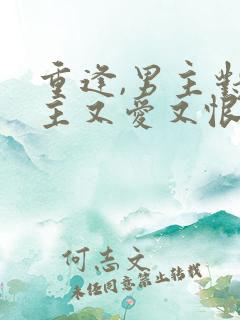 重逢,男主對
主又愛又恨
何志文
未经同意禁止转载